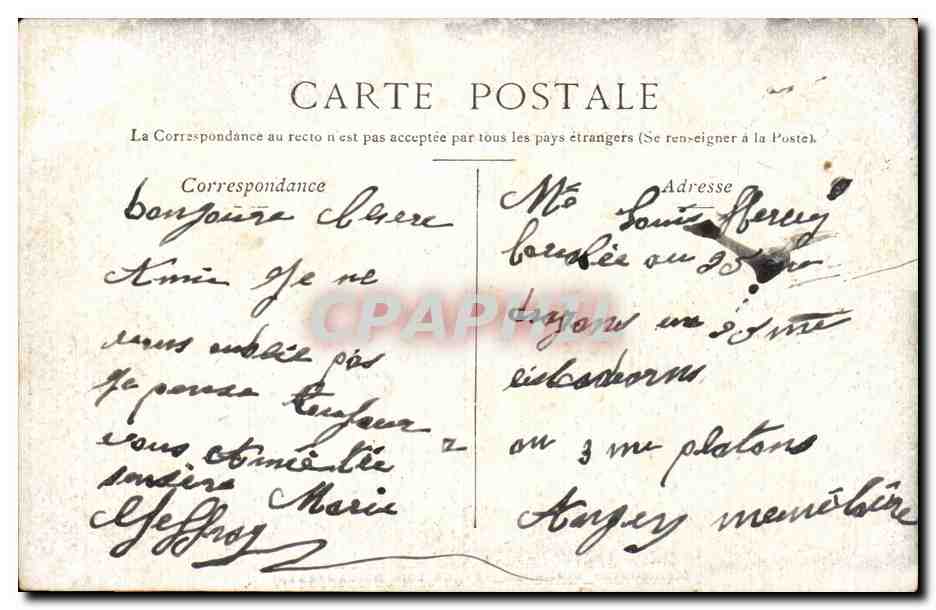 CARTE POSTALE
La Correspondance au recto n'est pas acceptée par tous les pays étrangers (Se renseigner à la Poste).
Correspondance
bonjoure Chere
Amie Je ne
vous oublie pas
Je pense toujour
vous Amiétée
sensère Marie
Jeffroy
Adresse
Mé Louis
au 25 me
dragons au 25 me
eiscadrons
au 3 me platons
Angers maine loire
CPAPHIL